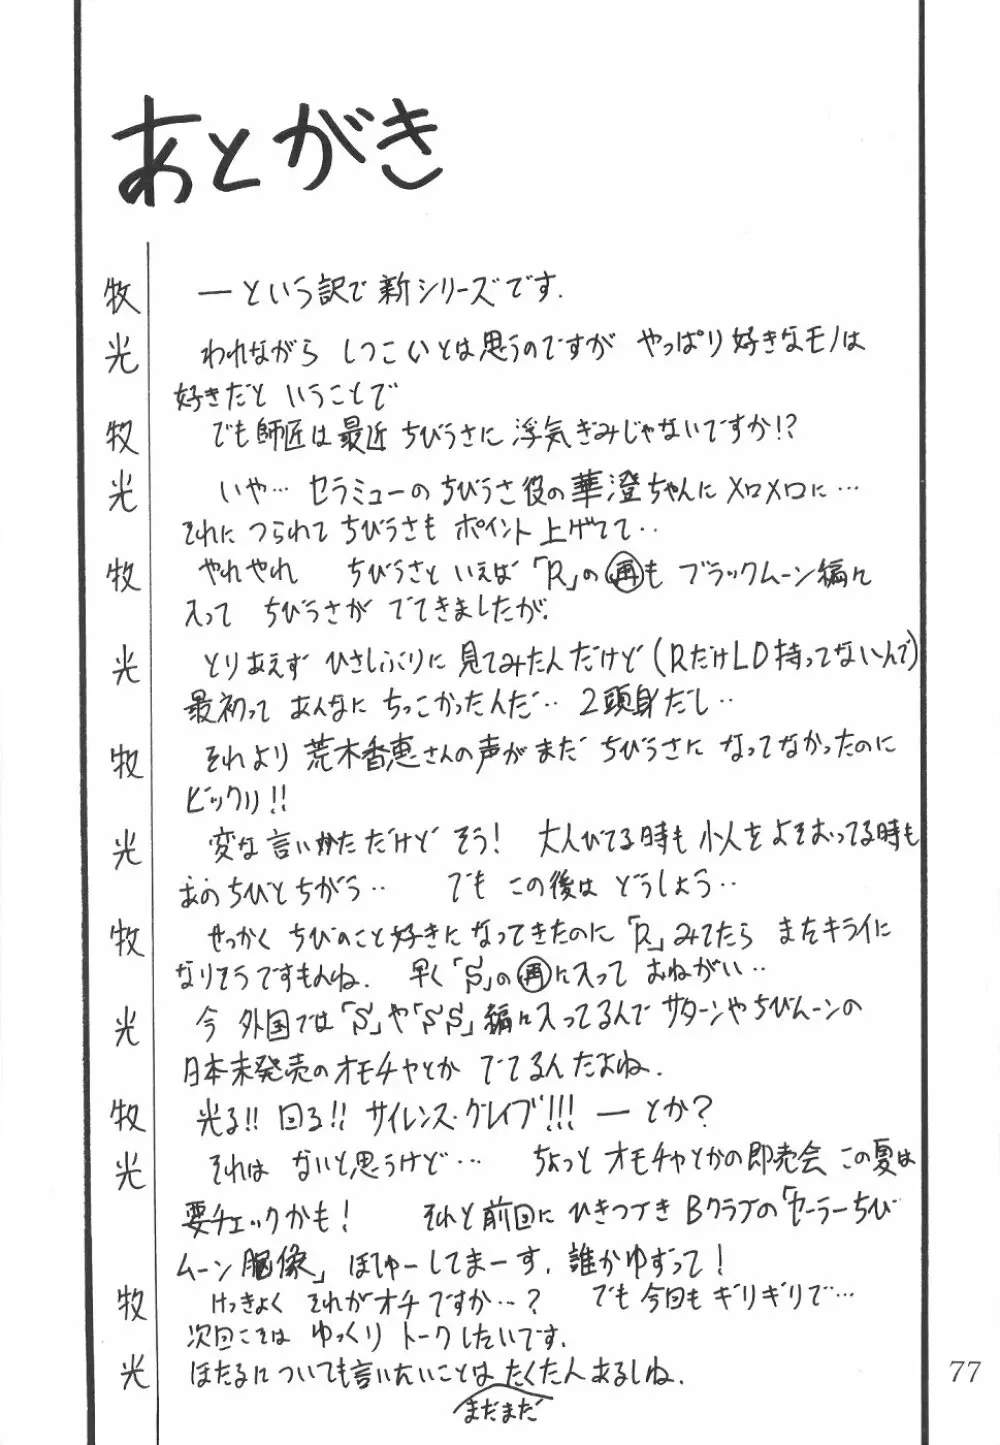 あとがき
牧 ―という訳で新シリーズです.
光 われながら しつこいとは思うのですが やっぱり好きなモノは
好きだと いうことで
牧 でも師匠は最近 ちびうさに 浮気ぎみじゃないですか!?
光 いや… セラミューのちびうさ役の華澄ちゃんにメロメロに…
それに つられて ちびうさも ポイント上げてて‥
牧 やれやれ ちびうさと いえば「R」の再も ブラックムーン編に
入って ちびうさが でてきましたが.
光 とりあえず ひさしぶりに 見てみたんだけど(RだけLD持ってないんで)
最初って あんなに ちっこかったんだ‥ 2頭身だし‥
牧 それより 荒木香恵さんの声がまだ ちびうさに なってなかったのに
ビックリ!!
光 変な言いかただけど そう! 大人びてる時も 小人をよそおってる時も
あのちびとちがう‥ でも この後は どうしよう‥
牧 せっかく ちびのこと好きになってきたのに「R」みてたら またキライに
なりそうですもんね. 早く「S」の再に入って おねがい‥
光 今 外国では「S」や「SS」編に入ってるんで サターンやちびムーンの
日本未発売のオモチャとか でてるんだよね.
牧 光る!! 回る!! サイレンス・グレイブ!!! ―とか?
光 それは ないと思うけど… ちょっと オモチャとかの即売会 この夏は
要チェックかも! それと前回に ひきつづき Bクラブの「セーラーちび
ムーン胸像」ぼしゅーしてまーす. 誰かゆずって!
牧 けっきょく それがオチですか…? でも今回も ギリギリで…
次回こそは ゆっくり トークしたいです.
光 ほたるについても言いたいことは たくさん あるしね.
まだまだ
77